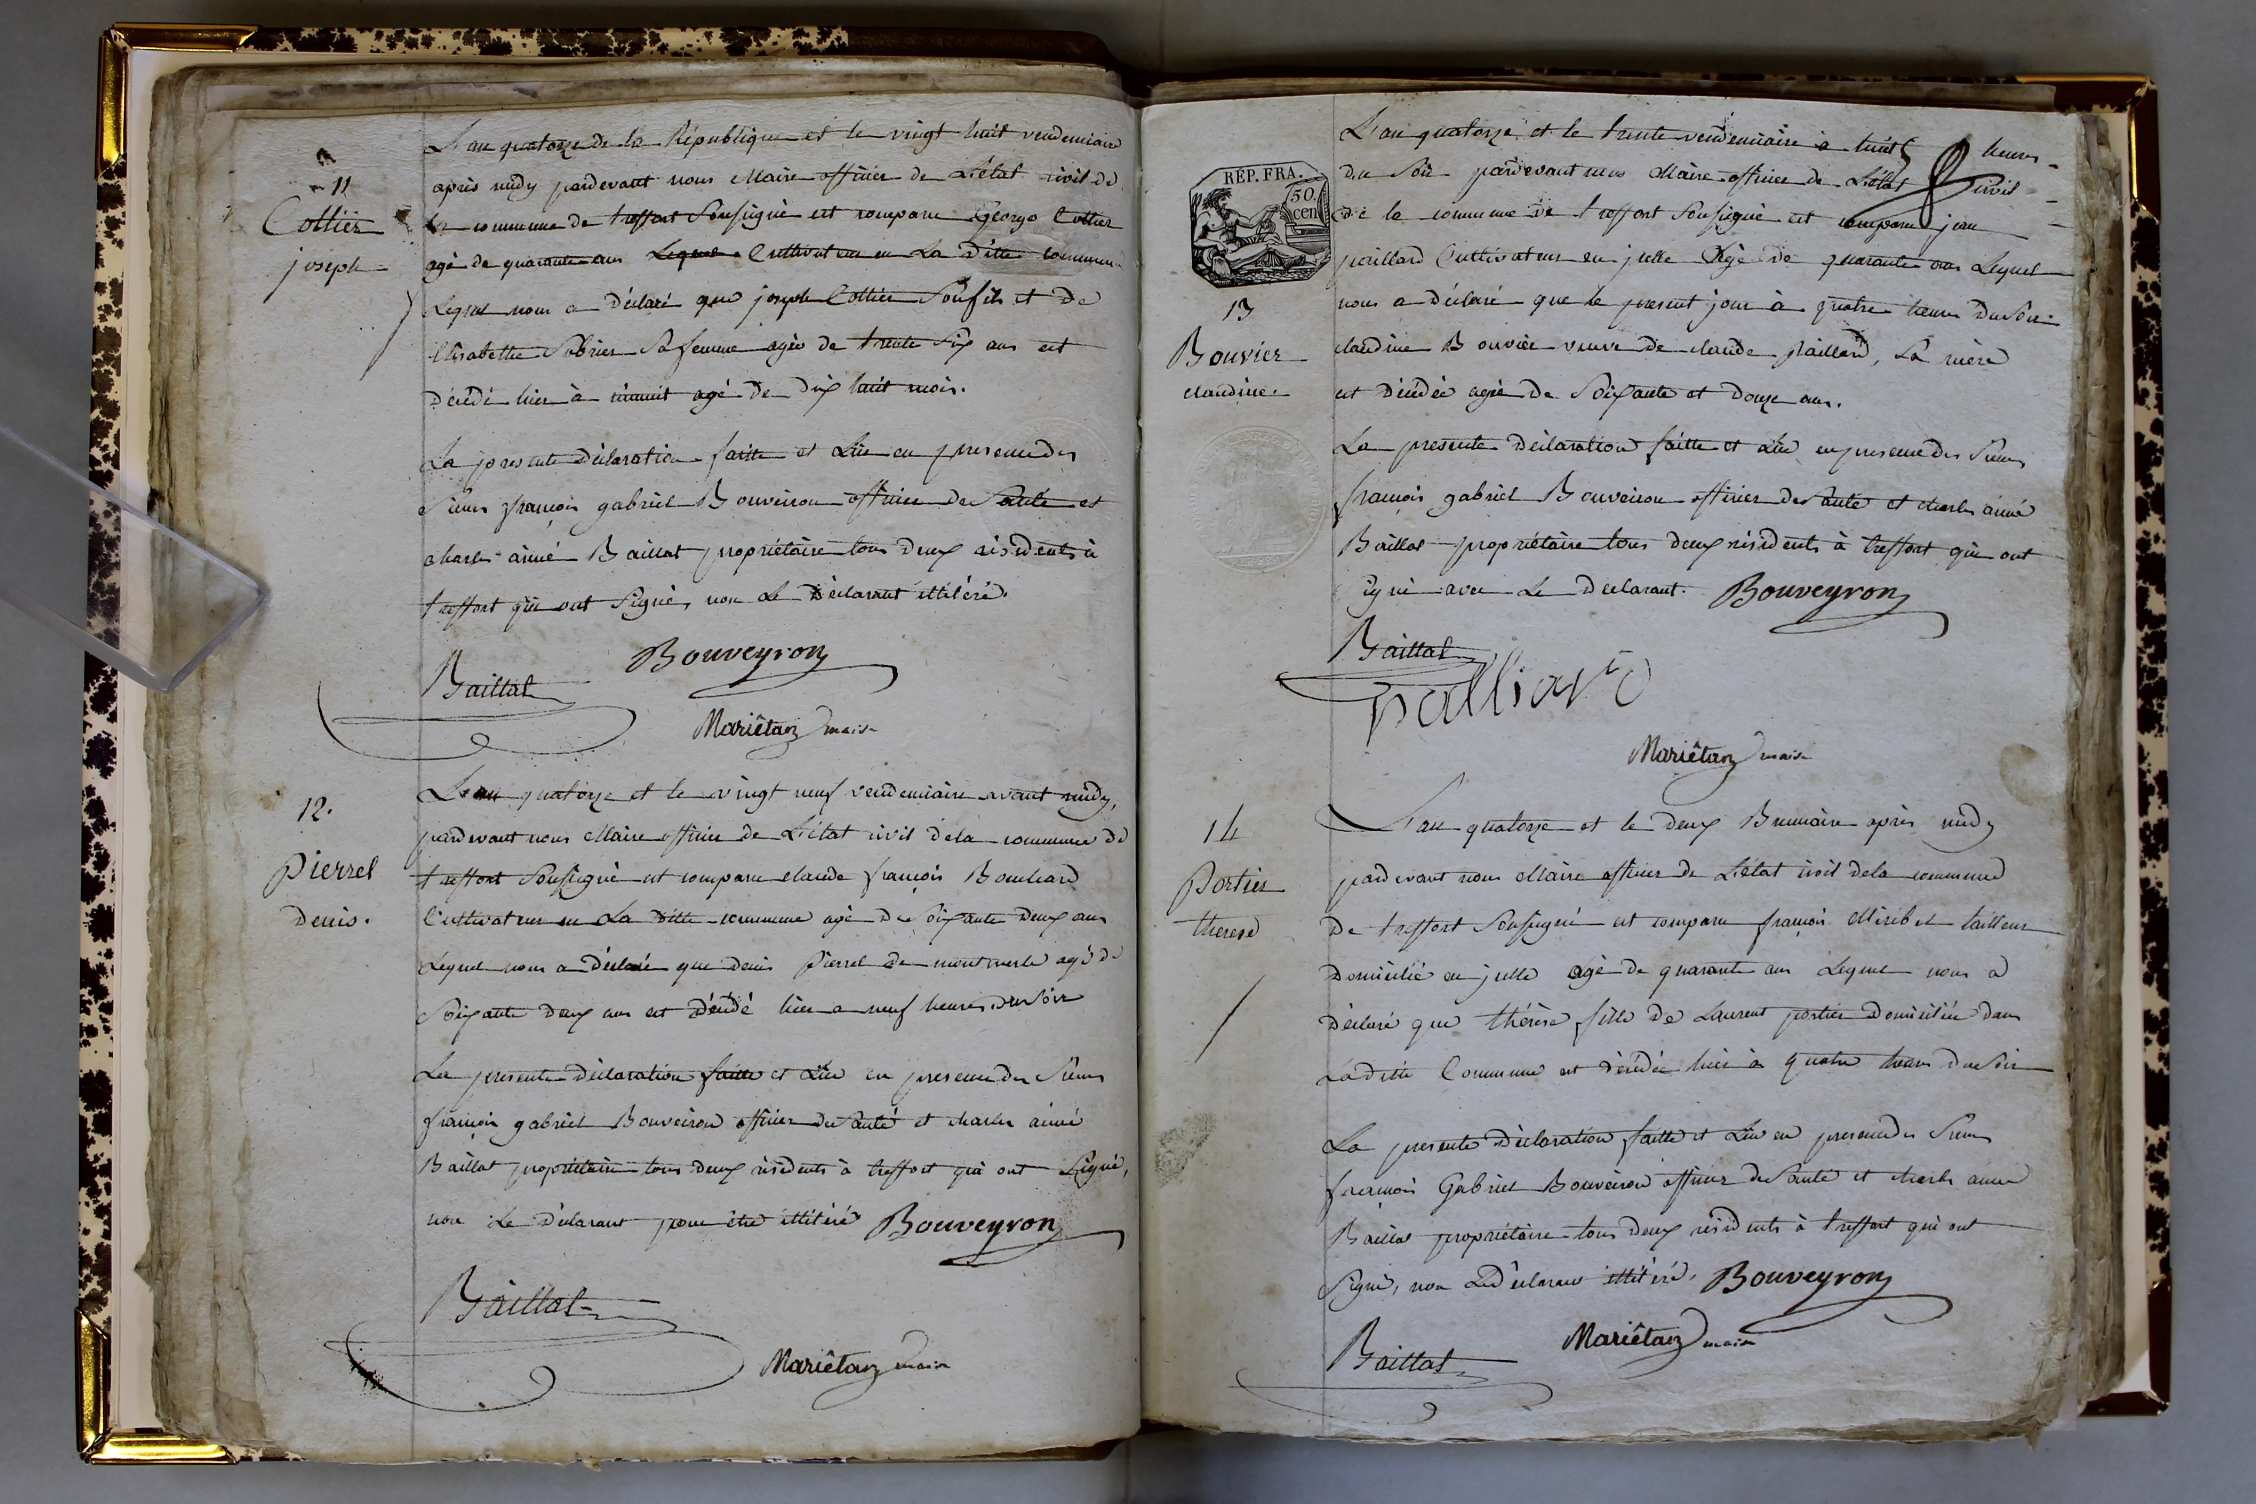 11
Cottier
joseph
L'an quatorze de la République et le vingt huit vendemiaire
après midy pardevant nous Maire officier de L'état civil de
la commune de treffort Soussigné est comparu George Cottier
agé de quarante ans Lequel Cultivateur en La ditte commune
Lequel nous a déclaré que joseph Cottier Son fils et de
Elisabethe Sobrier Sa femme agée de trente Six ans est
décédé hier à minuit agé de dix huit mois.
La presente déclaration faitte et Lüe en presence des
Sieurs françois gabriel Bouveiron officier de Santé et
charles aimé Baillat propriétaire tous deux résidents à
treffort qui ont Signé, non Le Déclarant illitéré.
Bouveyron
Baillat
Mariêtan maire
12.
Pierrel
denis.
L'an quatorze et le vingt neuf vendemiaire avant midy,
pardevant nous Maire officier de L'état civil de la commune de
treffort Soussigné est comparu claude françois Bouchard
Cultivateur en La ditte commune agé de Soixante deux ans
Lequel nous a déclaré que denis Pierrel de montmerle agé de
Soixante deux ans est décédé hier a neuf heures du Soir
La presente déclaration faitte et Lüe en presence des Sieurs
françois gabriel Bouveiron officier de Santé et charles aimé
Baillat propriétaire tous deux résidents à treffort qui ont Signé,
non Le Déclarant pour être illitéré Bouveyron
Baillat
Mariêtan maire
RÉP. FRA.
50.
cen
13
Bouvier
claudine
L'an quatorze et le trente vendemiaire à huit heures
du Soir pardevant nous Maire officier de L'état civil
de la commune de treffort Soussigné est comparu jean
paillard Cultivateur en Agé de quarante ans Lequel
nous a déclaré que le present jour à quatre heures du Soir
claudine Bouvier veuve de claude Paillard, Sa mère
est décédée agée de Soixante et douze ans.
La presente déclaration faitte et Lüe en presence des Sieurs
françois gabriel Bouveiron officier de Santé et charles aimé
Baillat propriétaire tous deux résidents à treffort qui ont
Signé avec Le Déclarant. Bouveyron
Baillat
palliard
Mariêtan maire
14
Portier
therese
L'an quatorze et le deux Brumaire après midy
pardevant nous Maire officier de L'état civil de la commune
de treffort Soussigné est comparu françois Mirebet tailleur
Domicilié en agé de quarante ans Lequel nous a
déclaré que thérèse fille de Laurent portier Domiciliée dans
La ditte Commune est décédée hier à quatre heures du Soir
La presente déclaration faitte et Lüe en presence des Sieurs
françois Gabriel Bouveiron officier de Santé et charles aimé
Baillat propriétaire tous deux résidents à treffort qui ont
Signé, non Le Déclarant illitéré. Bouveyron
Mariêtan maire
Baillat